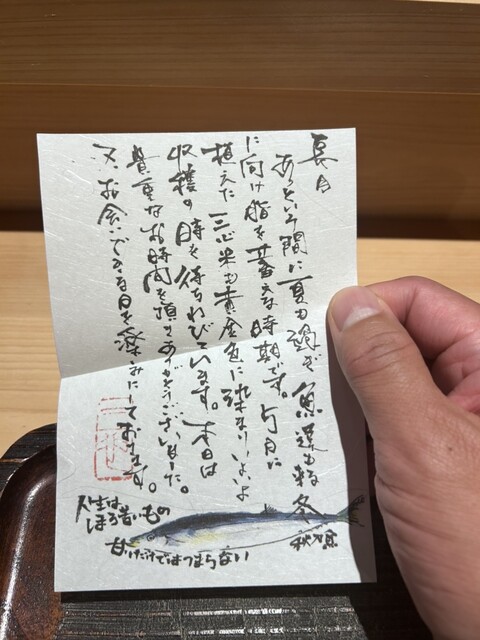 長月
あっという間に夏も過ぎ魚達も来る冬
に向け脂を蓄える時期です。5月に
植えた三心米も黄金色に染まりいよいよ
収穫の時を待ちわびています。本日は
貴重なお時間を頂きありがとうございました。
又、お会いできる日を楽しみにしております。
秋刀魚
人生は
ほろ苦いもの
甘いだけではつまらない